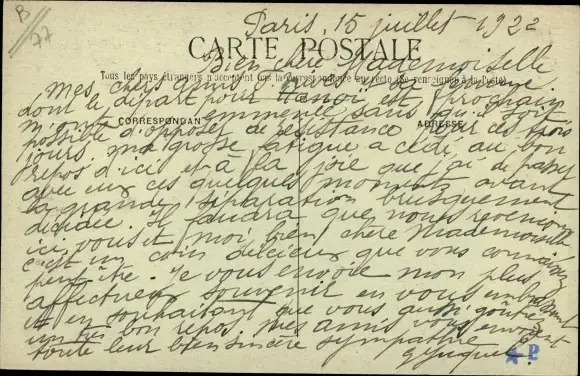 B/77
Paris, 15 juillet 1922
CARTE POSTALE
Bien chère Mademoiselle
Tous les pays étrangers n'acceptent pas la correspondance au recto (Se renseigner à la Poste)
Mes chers amis
dont le départ pour Hanoï est prochain
m'ont emmenée sans qu'il soit
CORRESPONDAN
ADRESSE
possible d'opposer de résistance ces trois
jours ma grosse fatigue a cédé au bon
repos d'ici et à la joie que j'ai de passer
avec eux ces quelques moments avant
la grande séparation brusquement
décidée. Il faudra que nous revenions
ici vous et moi bien chère Mademoiselle
c'est un coin délicieux que vous connaissez
peut-être. Je vous envoie mon plus
affectueux souvenir en vous embrassant
et en souhaitant que vous aussi goûtiez
un bon repos. Mes amis vous envoient
toute leur bien sincère sympathie